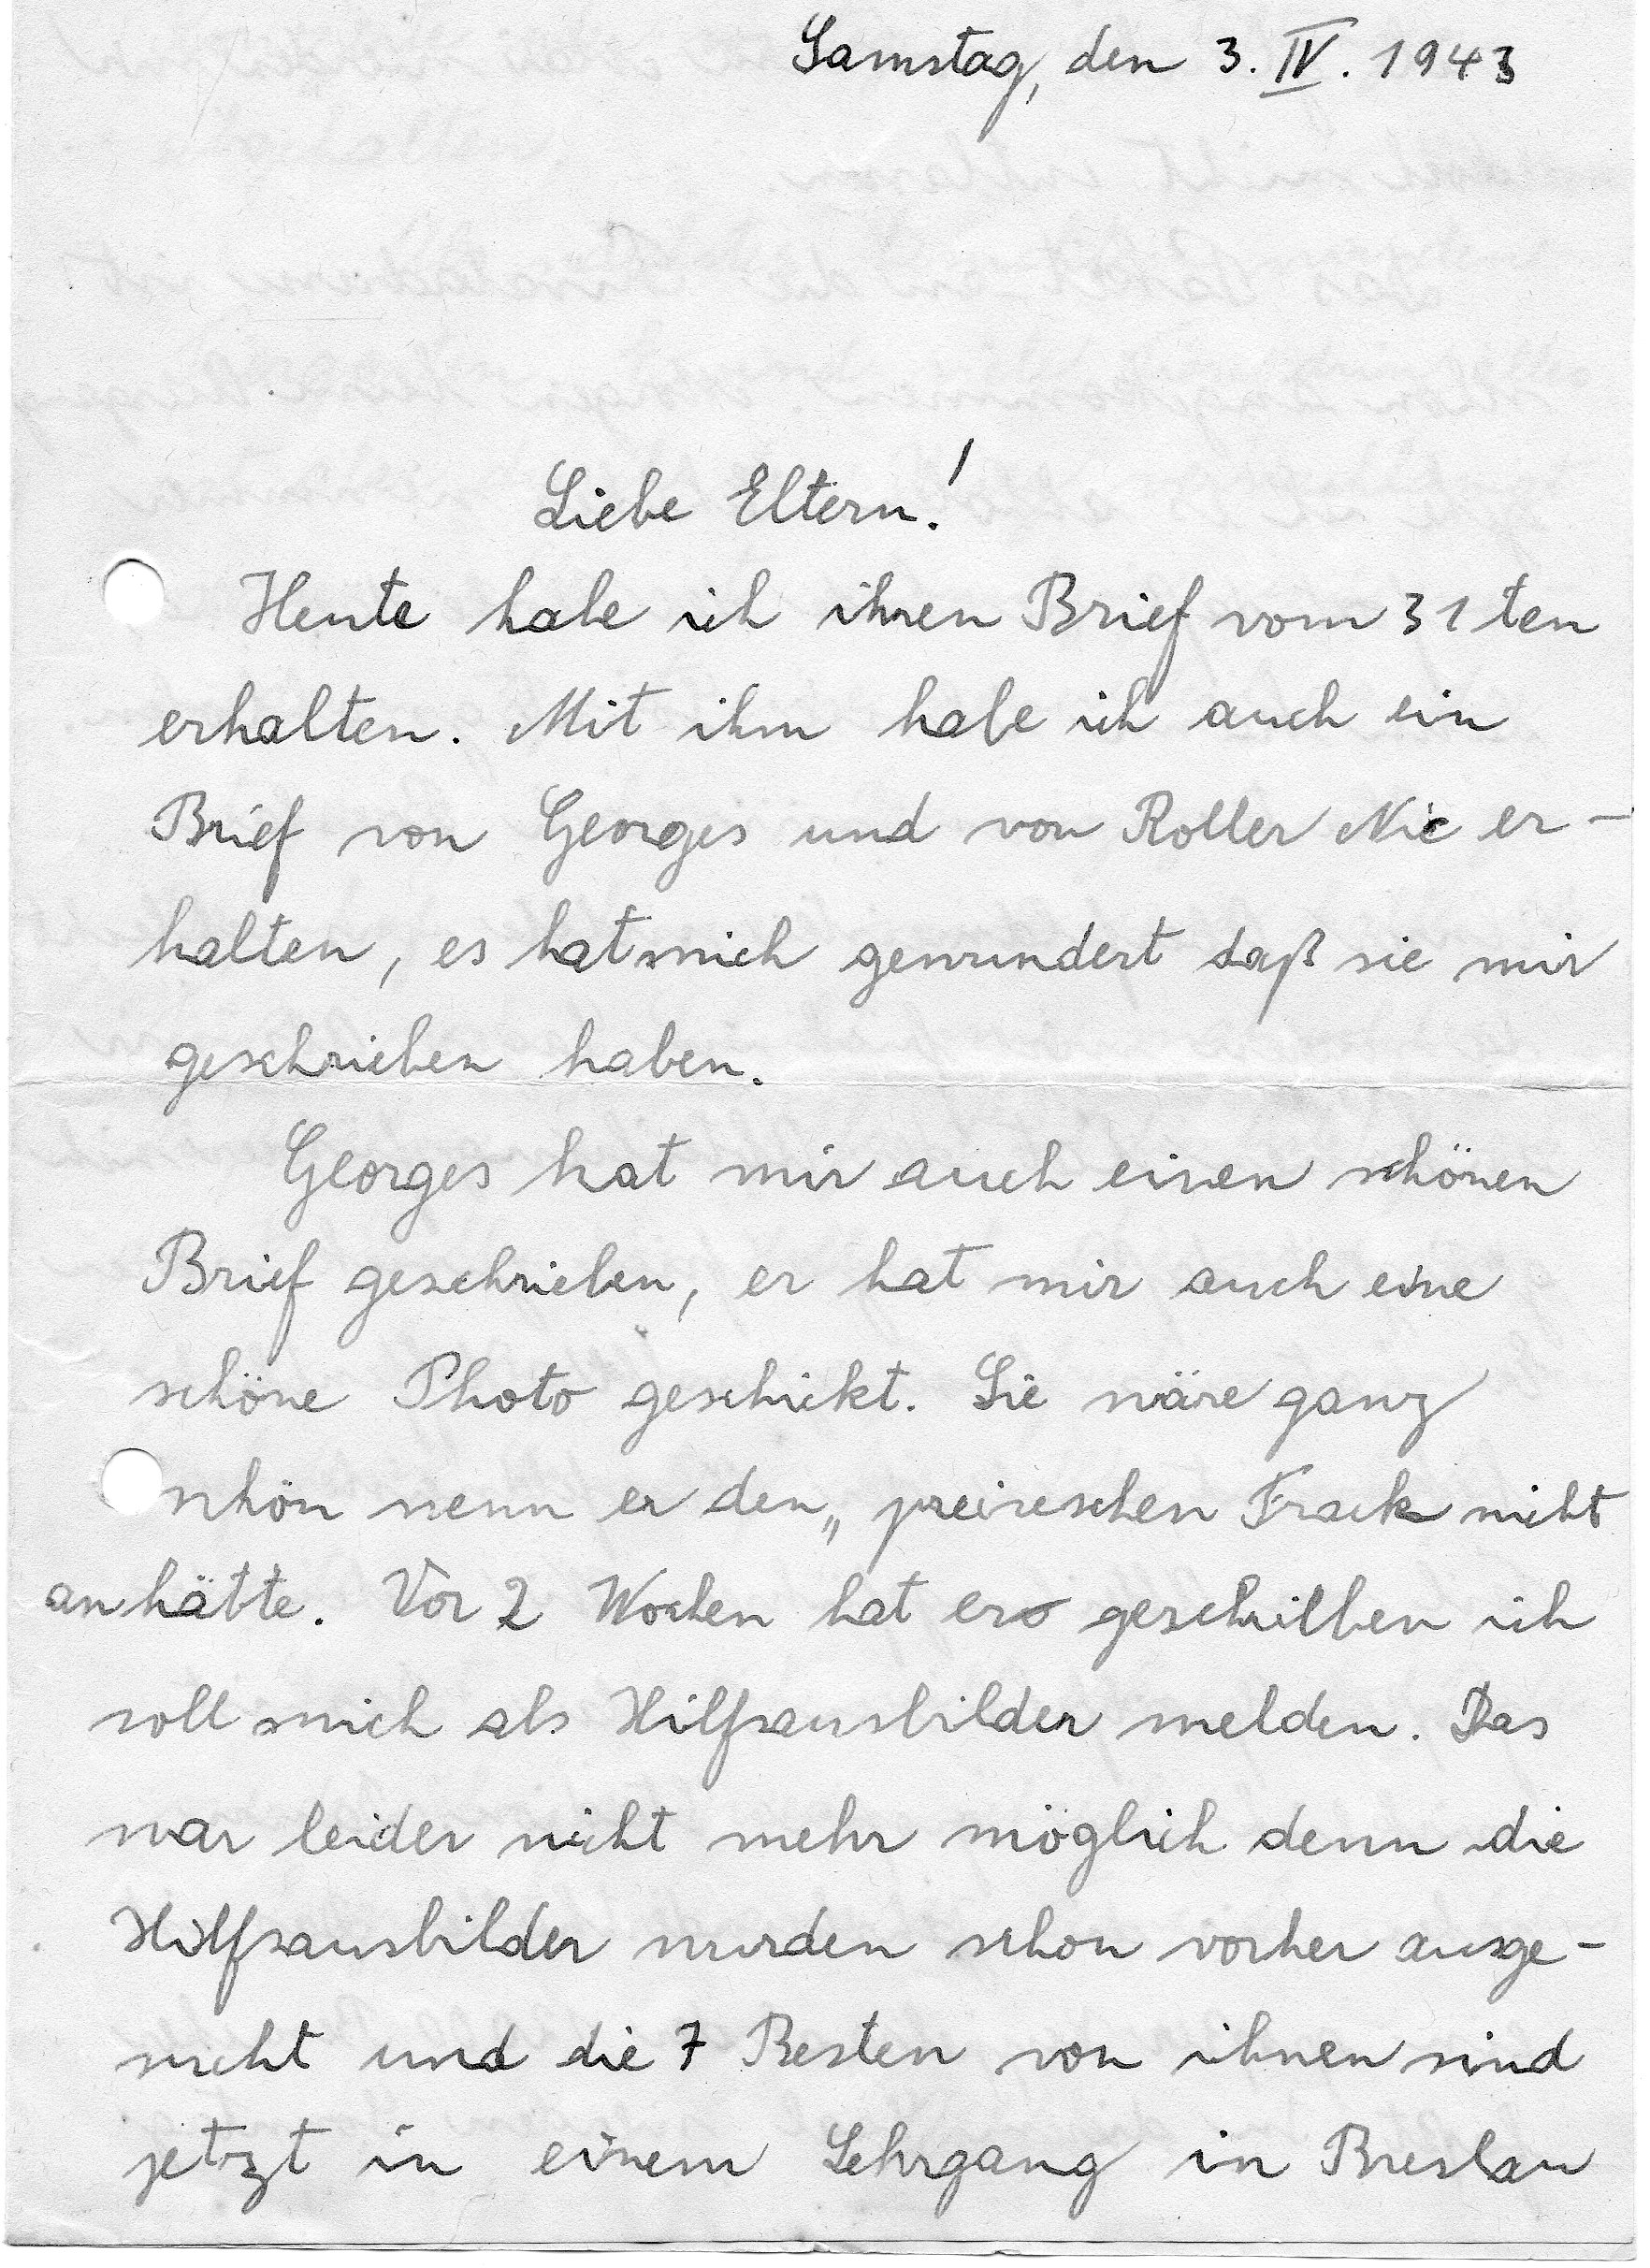 Samstag, den 3. IV. 1943
Liebe Eltern!
Heute habe ich ihren Brief vom 31ten
erhalten. Mit ihm habe ich auch ein
Brief von Georges und von Roller Nic er-
halten, es hat mich gewundert daß sie mir
geschrieben haben.
Georges hat mir auch einen schönen
Brief geschrieben, er hat mir auch eine
schöne Photo geschickt. Sie wäre ganz
schön wenn er den „ preireschen Frack nicht
anhätte. Vor 2 Wochen hat er geschrieben ich
soll mich als Hilfsausbilder melden. Das
war leider nicht mehr möglich denn die
Hilfsausbilder wurden schon vorher ausge-
sucht und die 7 Besten von ihnen sind
jetzt in einem Lehrgang in Breslau